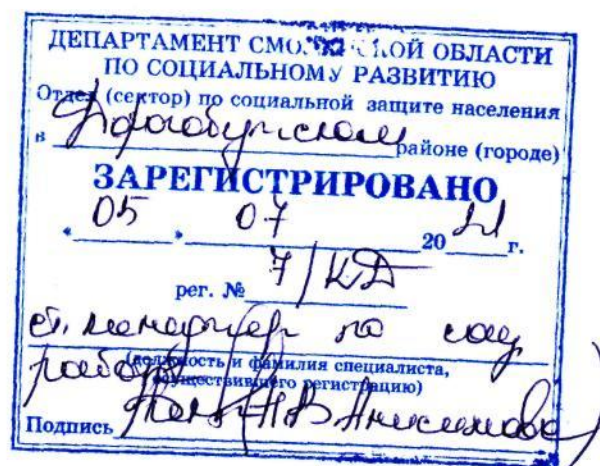 ДЕПАРТАМЕНТ СМОЛЕНСКОЙ ОБЛАСТИ
ПО СОЦИАЛЬНОМУ РАЗВИТИЮ
Отдел (сектор) по социальной защите населения
в Дорогобужском районе (городе)
ЗАРЕГИСТРИРОВАНО
« 05 » 07 2021 г.
рег. № 7/КД
ст. менеджер по соц
работе
(должность и фамилия специалиста,
осуществившего регистрацию)
Подпись Н В Анисимова)